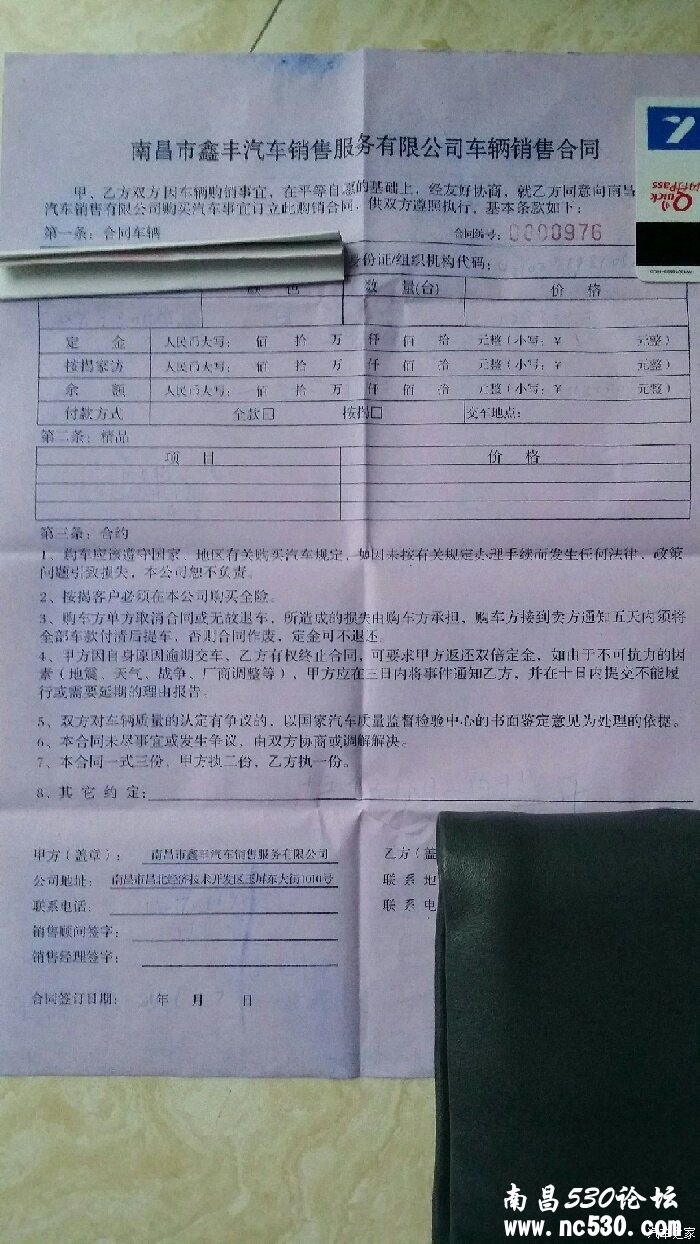 南昌市鑫丰汽车销售服务有限公司车辆销售合同
Quick
Pass
甲、乙方双方因车辆购销事宜，在平等自愿的基础上，经友好协商，就乙方同意向南昌
汽车销售有限公司购买汽车事宜订立此购销合同，供双方遵照执行，基本条款如下：
第一条：合同车辆 合同编号：0000976
身份证/组织机构代码：
颜 色 数 量(台) 价 格
定 金 人民币大写： 佰 拾 万 仟 佰 拾 元整（小写：¥ 元整）
按揭家访 人民币大写： 佰 拾 万 仟 佰 拾 元整（小写：¥ 元整）
余 额 人民币大写： 佰 拾 万 仟 佰 拾 元整（小写：¥ 元整）
付款方式 全款□ 按揭□ 交车地点：
第二条：精品
项 目 价 格
第三条：合约
1、购车应该遵守国家、地区有关购买汽车规定，如因未按有关规定办理手续而发生任何法律、政策
问题引致损失，本公司恕不负责。
2、按揭客户必须在本公司购买全险。
3、购车方单方取消合同或无故退车，所造成的损失由购车方承担，购车方接到卖方通知五天内须将
全部车款付清后提车，否则合同作废，定金可不退还。
4、甲方因自身原因逾期交车，乙方有权终止合同，可要求甲方返还双倍定金，如由于不可抗力的因
素（地震、天气、战争、厂商调整等），甲方应在三日内将事件通知乙方，并在十日内提交不能履
行或需要延期的理由报告。
5、双方对车辆质量的认定有争议的，以国家汽车质量监督检验中心的书面鉴定意见为处理的依据。
6、本合同未尽事宜或发生争议，由双方协商或调解解决。
7、本合同一式三份，甲方执二份，乙方执一份。
8、其它约定：
甲方（盖章）： 南昌市鑫丰汽车销售服务有限公司 乙方（盖
公司地址： 南昌市昌北经济技术开发区玉屏东大街1010号 联系地
联系电话： 联系电
销售顾问签字：
销售经理签字：
合同签订日期： 年 月 日
南昌530论坛
www.nc530.com
汽车之家